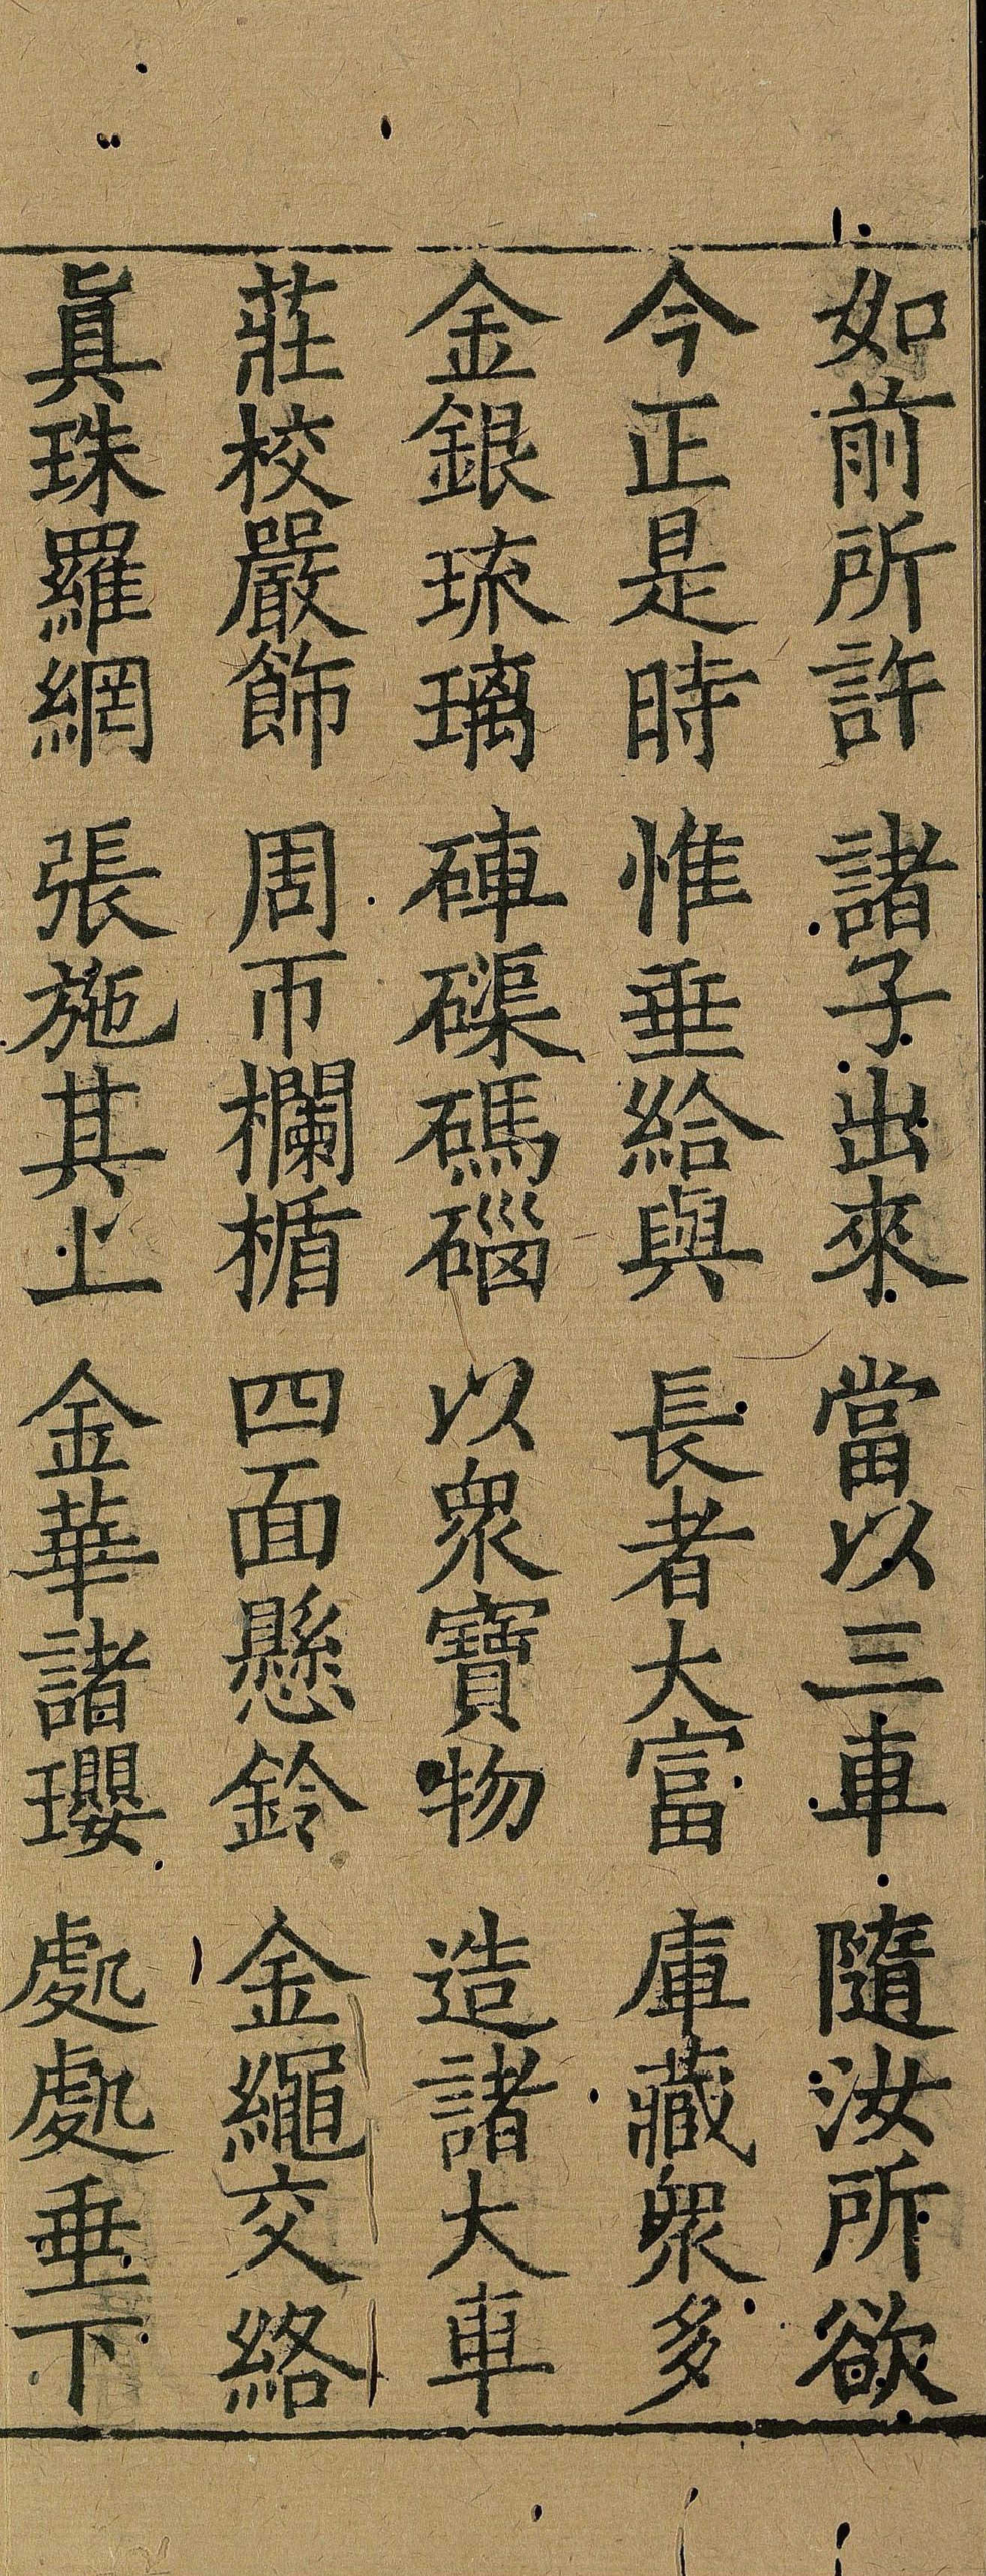 如前所許 諸子出來 當以三車 隨汝所欲
今正是時 惟垂給與 長者大富 庫藏衆多
金銀琉璃 硨磲碼碯 以衆寶物 造諸大車
莊校嚴飾 周帀欄楯 四面懸鈴 金繩交絡
眞珠羅網 張施其上 金華諸瓔 處處垂下